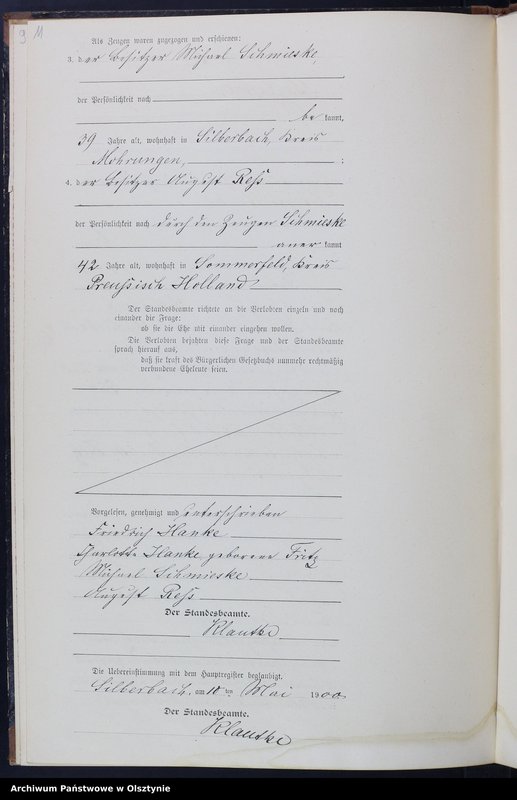 9 11
Als Zeugen waren zugezogen und erschienen:
3. der Besitzer Michael Schmieske,
der Persönlichkeit nach
be kannt,
39 Jahre alt, wohnhaft in Silberbach, Kreis
Mohrungen, ;
4. der Besitzer August Reß
der Persönlichkeit nach durch den Zeugen Schmieske
aner kannt
42 Jahre alt, wohnhaft in Sommerfeld, Kreis
Preußisch Holland
Der Standesbeamte richtete an die Verlobten einzeln und nach
einander die Frage:
ob sie die Ehe mit einander eingehen wollen.
Die Verlobten bejahten diese Frage und der Standesbeamte
sprach hierauf aus,
daß sie kraft des Bürgerlichen Gesetzbuchs nunmehr rechtmäßig
verbundene Eheleute seien.
Vorgelesen, genehmigt und unterschrieben
Friedrich Hanke
Charlotte Hanke geborene Fritz
Michael Schmieske
August Reß
Der Standesbeamte.
Klautke
Die Uebereinstimmung mit dem Hauptregister beglaubigt.
Silberbach, am 10 ten Mai 1900
Der Standesbeamte.
Klautke
Archiwum Państwowe w Olsztynie